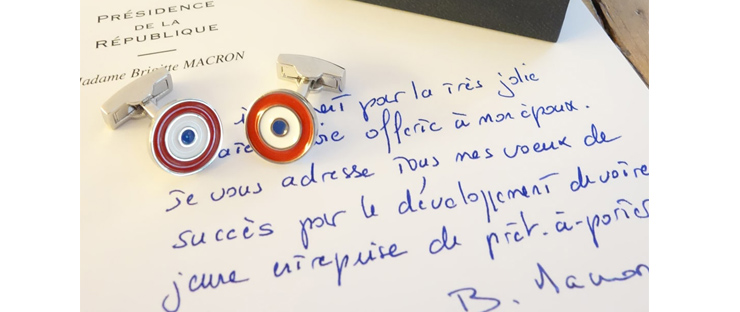 PRÉSIDENCE
DE LA
RÉPUBLIQUE
Madame Brigitte MACRON
par la très jolie
offerte à mon époux.
Je vous adresse tous mes voeux de
succès par le développement de votre
jeune entreprise de prêt-à-porter
B. Macron